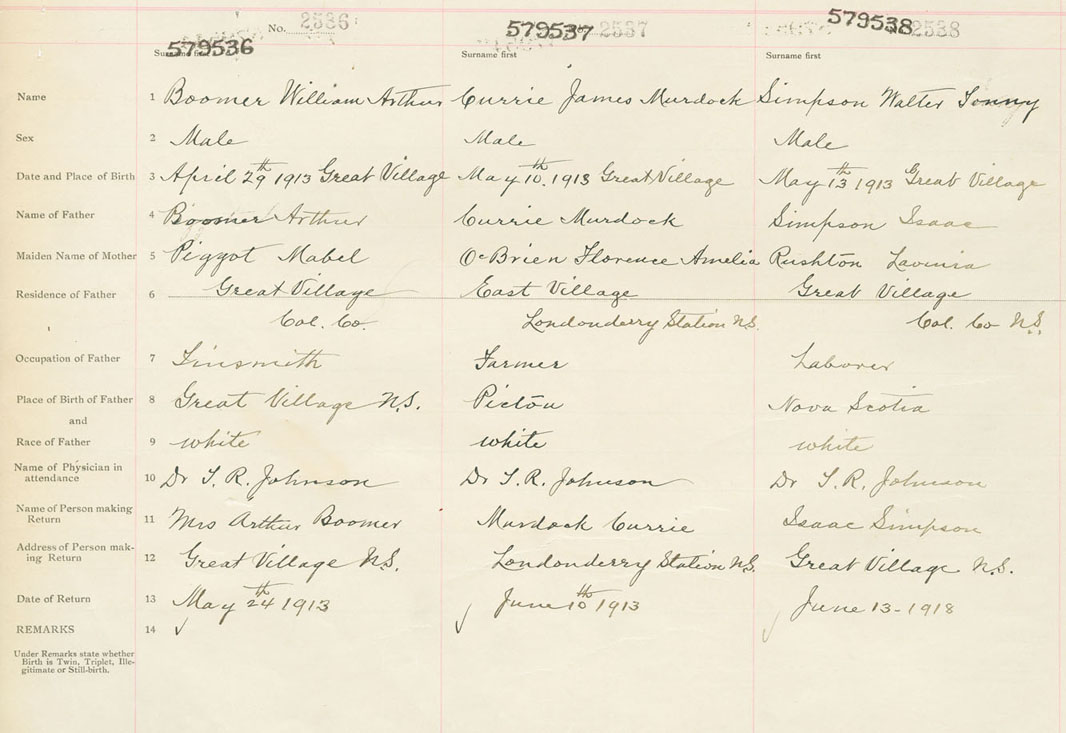 No. 2536
579536
579537 2537
579538 2538
Surname first Surname first Surname first
Name 1 Boomer William Arthur Currie James Murdock Simpson Walter
Sex 2 Male Male Male
Date and Place of Birth 3 April 29th 1913 Great Village May 10th. 1913 Great Village May 13th 1913 Great Village
Name of Father 4 Boomer Arthur Currie Murdock Simpson Isaac
Maiden Name of Mother 5 Piggot Mabel O'Brien Florence Amelia Rushton Lavinia
Residence of Father 6 Great Village East Village Great Village
Col. Co. Londonderry Station N.S. Col. Co N.S.
Occupation of Father 7 Tinsmith Farmer Laborer
Place of Birth of Father 8 Great Village N.S. Pictou Nova Scotia
and
Race of Father 9 white white white
Name of Physician in
attendance 10 Dr T. R. Johnson Dr T. R. Johnson Dr T. R. Johnson
Name of Person making
Return 11 Mrs Arthur Boomer Murdock Currie Isaac Simpson
Address of Person mak-
ing Return 12 Great Village N.S. Londonderry Station N.S. Great Village N.S.
Date of Return 13 May 24th 1913 June 10th 1913 June 13-1918
REMARKS 14
Under Remarks state whether
Birth is Twin, Triplet, Ille-
gitimate or Still-birth.